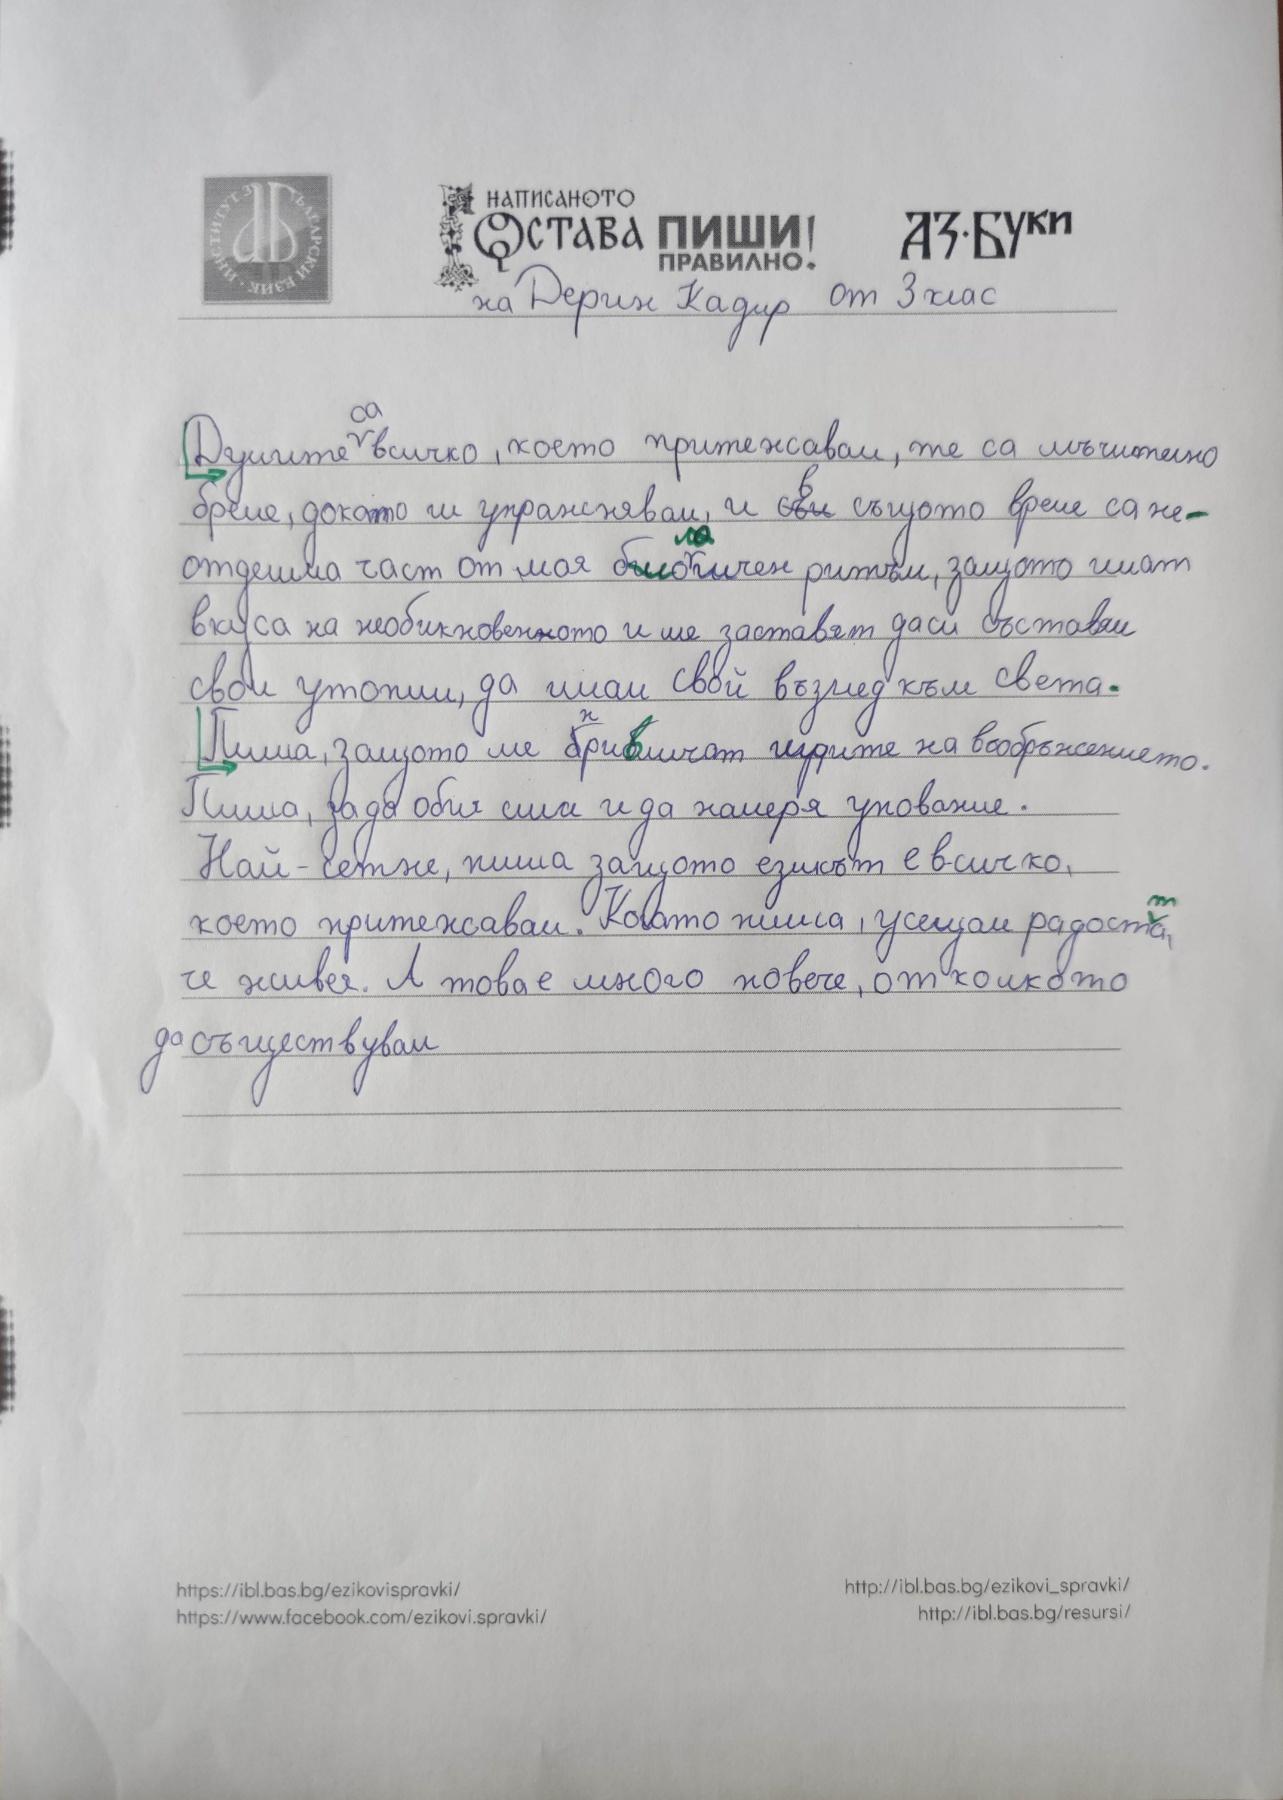 ИНСТИТУТ ЗА БЪЛГАРСКИ ЕЗИК
НАПИСАНОТО
ОСТАВА ПИШИ!
ПРАВИЛНО!
АЗ·БУКИ
на Дерин Кадир от 3 клас
са
Думите всичко, което притежавам, те са мъчително
в
бреме, докато ги упражнявам, и същото време са не-
ла
отделима част от моя биологичен ритъм, защото имат
вкуса на необикновенното и ме заставят да си съставям
свои утопии, да имам свой възглед към света.
Пиша, защото ме привличат игрите на вообръжението.
Пиша, за да обичам и да намеря упование.
Най-сетне, пиша защото езикът е всичко,
което притежавам. Когато пиша, усещам радостта,
че живея. А това е много повече, от колкото
да съществувам
https://ibl.bas.bg/ezikovispravki/
https://www.facebook.com/ezikovi.spravki/
http://ibl.bas.bg/ezikovi_spravki/
http://ibl.bas.bg/resursi/